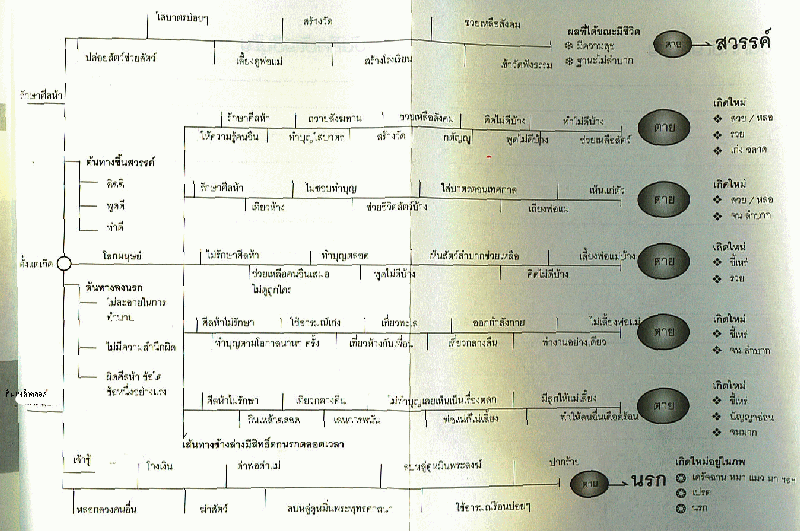 ใส่บาตรบ่อยๆ
สร้างวัด
ช่วยเหลือสังคม
ปล่อยสัตว์ช่วยสัตว์
เลี้ยงดูพ่อแม่
สร้างโรงเรียน
เข้าวัดฟังธรรม
ผลที่ได้ขณะมีชีวิต
มีความสุข
ฐานะไม่ลำบาก
ตาย
สวรรค์
รักษาศีลห้า
รักษาศีลห้า
ถวายสังฆทาน
ช่วยเหลือสังคม
คิดไม่ดีบ้าง
ทำไม่ดีบ้าง
ให้ความรู้คนอื่น
ทำบุญใส่บาตร
สร้างวัด
กตัญญู
พูดไม่ดีบ้าง
ช่วยเหลือสัตว์
ตาย
เกิดใหม่
สวย / หล่อ
รวย
เก่ง ฉลาด
ต้นทางขึ้นสวรรค์
คิดดี
พูดดี
ทำดี
รักษาศีลห้า
ไม่ชอบทำบุญ
ใส่บาตรตอนเทศกาล
เห็นแก่ตัว
เที่ยวห้าง
ช่วยชีวิตสัตว์บ้าง
เถียงพ่อแม่
ตาย
เกิดใหม่
สวย / หล่อ
จน ลำบาก
ตั้งแต่เกิด
โลกมนุษย์
ไม่รักษาศีลห้า
ทำบุญตลอด
เห็นสัตว์ลำบากช่วยเหลือ
เลี้ยงพ่อแม่บ้าง
ช่วยเหลือคนอื่นเสมอ
ไม่ดูถูกใคร
พูดไม่ดีบ้าง
คิดไม่ดีบ้าง
ตาย
เกิดใหม่
ขี้เหร่
รวย
ต้นทางลงนรก
ไม่ละอายในการ
ทำบาป
ไม่มีความสำนึกผิด
ผิดศีลห้า ข้อใด
ข้อหนึ่งอย่างแรง
ศีลห้าไม่รักษา
ใช้อารมณ์เก่ง
เที่ยวทะเล
ออกกำลังกาย
ไม่เลี้ยงพ่อแม่
ทำบุญตามโอกาสนานๆ ครั้ง
เที่ยวห้างกับเพื่อน
เที่ยวกลางคืน
ทำงานอย่างเดียว
ตาย
เกิดใหม่
ขี้เหร่
จน ลำบาก
ศีลห้าไม่รักษา
เที่ยวกลางคืน
ไม่ทำบุญเลยเห็นเป็นเรื่องตลก
มีลูกให้แม่เลี้ยง
กินเหล้าตลอด
เล่นการพนัน
พ่อแม่ไม่เลี้ยง
ทำให้คนอื่นเดือดร้อน
ตาย
เกิดใหม่
ขี้เหร่
ปัญญาอ่อน
จนมาก
เส้นทางช่วงล่างมีสิทธิ์ตกนรกตลอดเวลา
เจ้าชู้
โกงเงิน
ด่าพ่อด่าแม่
ลบหลู่ดูหมิ่นพระสงฆ์
ปากร้าย
หลอกลวงคนอื่น
ฆ่าสัตว์
ลบหลู่ดูหมิ่นพระพุทธศาสนา
ใช้อารมณ์ร้อนบ่อยๆ
ตาย
นรก
เกิดใหม่อยู่ในภพ
เดรัจฉาน หมา แมว มา
เปรต
นรก